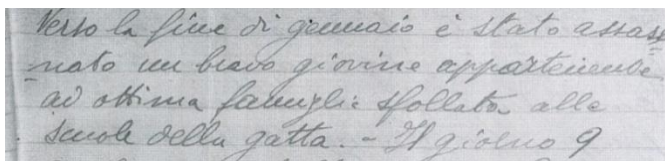 Verso la fine di gennaio è stato assass
nato un bravo giovine appartenente
ad ottima famiglia sfollata alle
scuole della gatta. - Il giorno 9